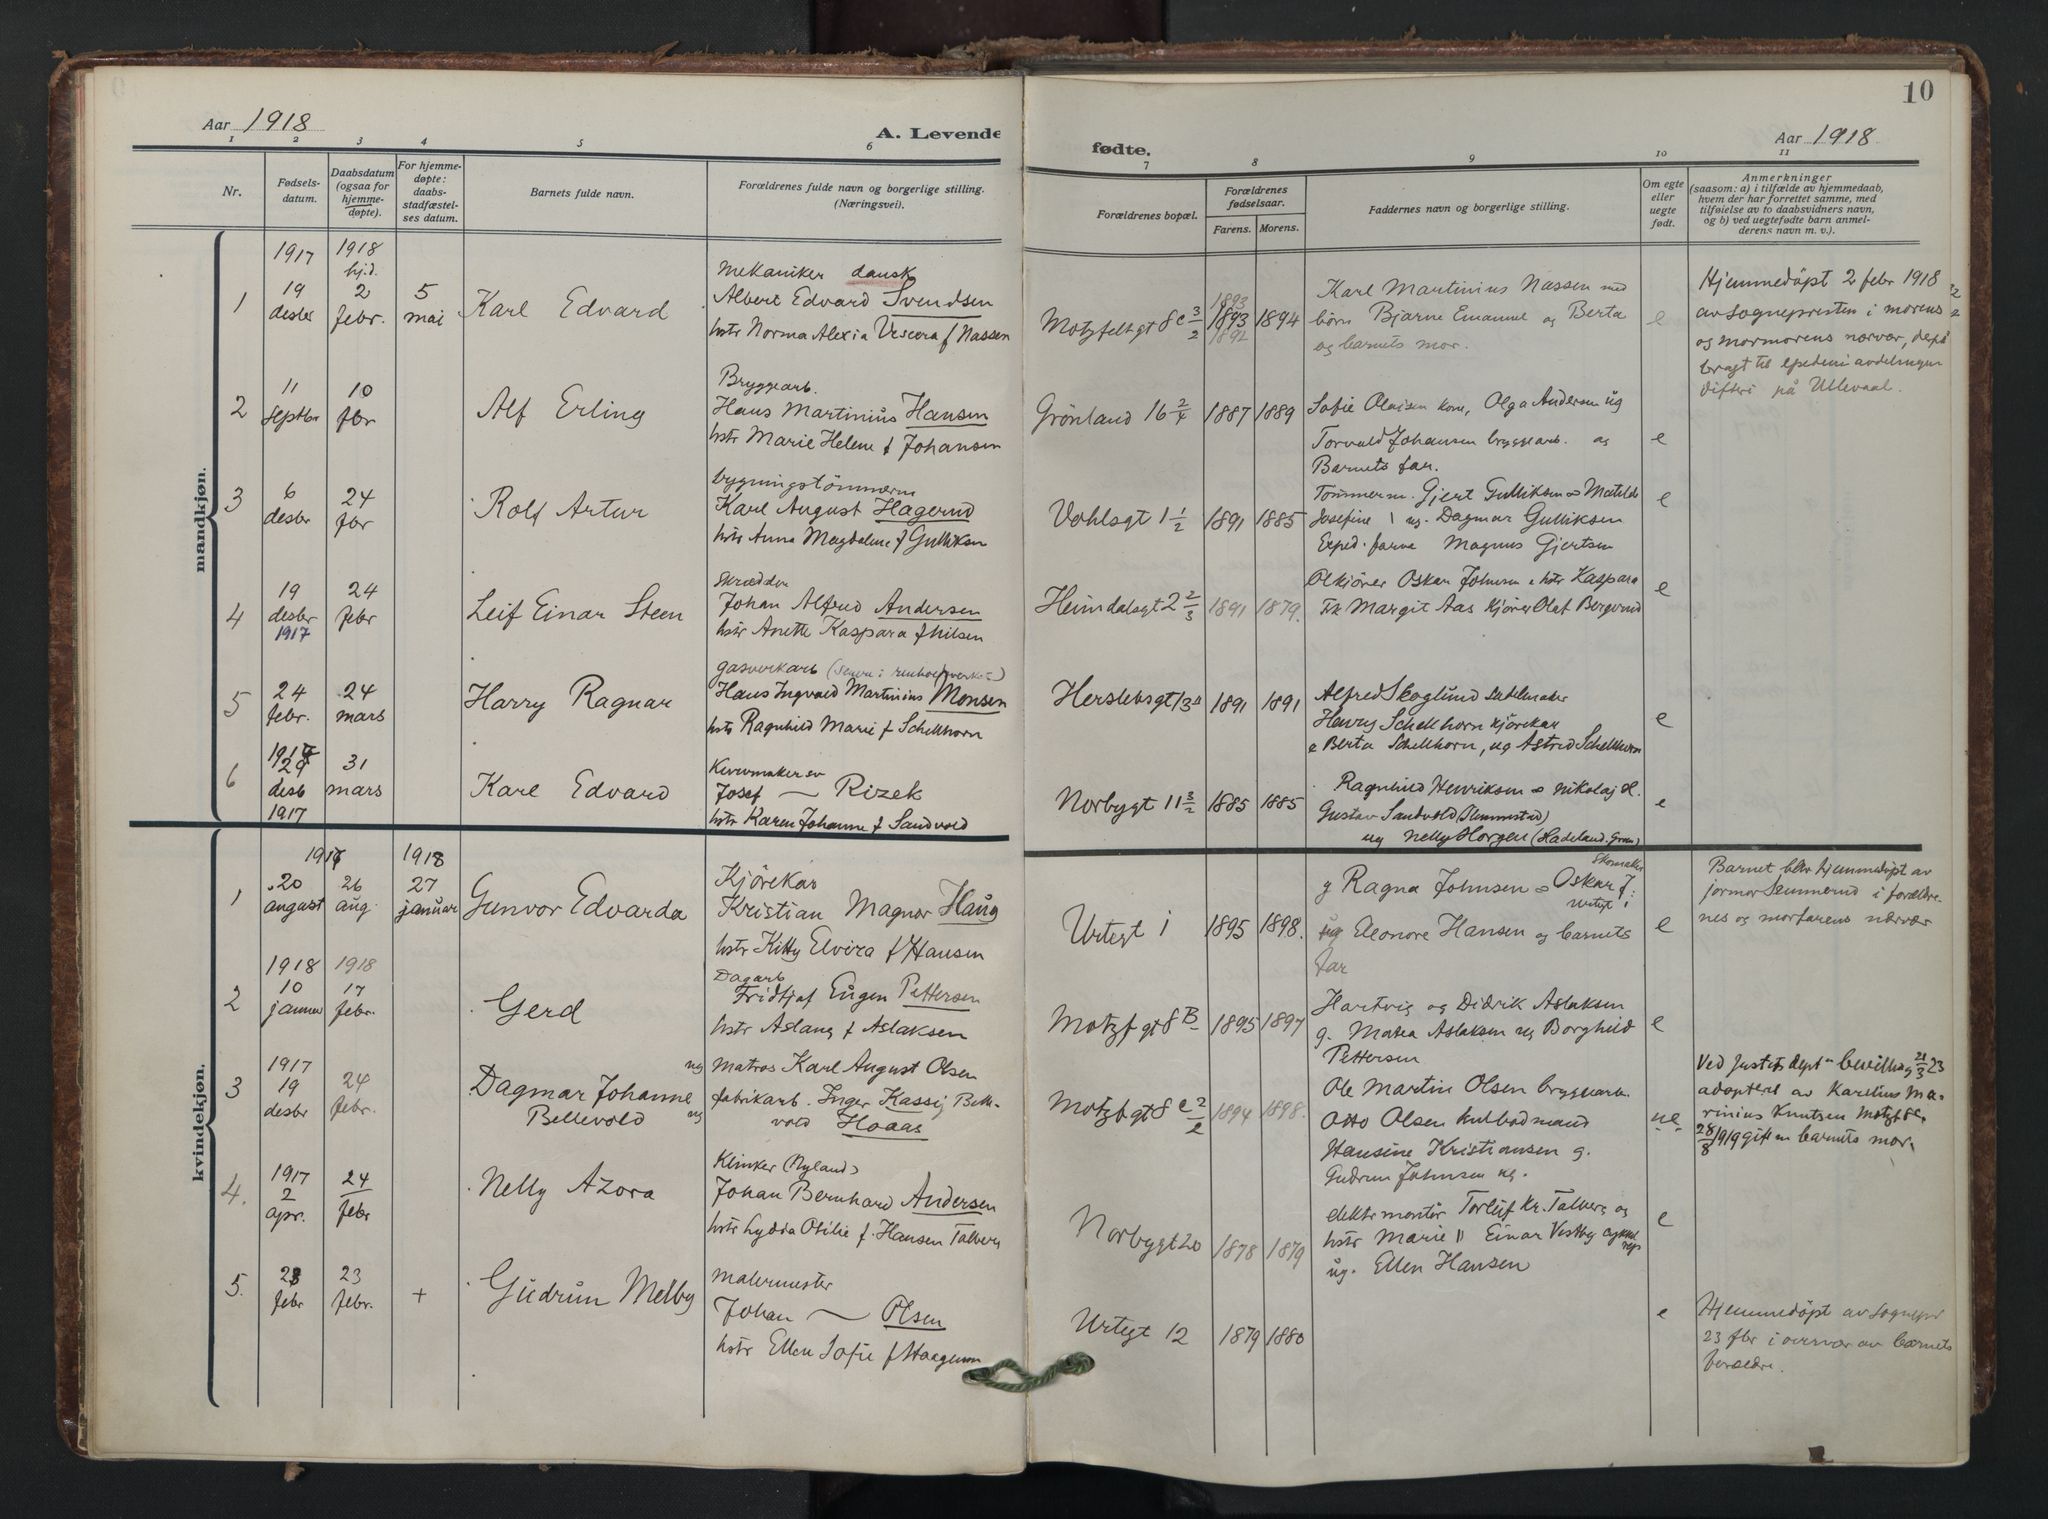 10
Aar 1918
A. Levende
fødte.
Aar 1918
1 2 3 4 5 6 7 8 9 10 11
Nr.
Fødsels-
datum.
Daabsdatum
(ogsaa for
hjemme-
døpte).
For hjemme-
døpte:
daabs-
stadfæstel-
ses datum.
Barnets fulde navn.
Forældrenes fulde navn og borgerlige stilling.
(Næringsvei).
Forældrenes bopæl.
Forældrenes
fødselsaar.
Farens. Morens.
Faddernes navn og borgerlige stilling.
Om egte
eller
uegte
født.
Anmerkninger
(saasom: a) i tilfælde av hjemmedaab,
hvem der har forrettet samme, med
tilføielse av to daabsvidners navn,
og b) ved uegtefødte barn anmel-
derens navn m. v.).
mandkjøn.
1
1917
19
desbr
1918
hj.d.
2
febr.
5
mai
Karl Edvard
Mekaniker dansk
Albert Edvard Svendsen
hstr Norma Alexia Vescora f Nassen
Motzfeldtgt 8c 3/2
1893
1893
1892
1894
Karl Martinius Nassen med
børn Bjarne Emanuel og Berta
og barnets mor.
e
Hjemmedöpt 2 febr 1918
av sognepresten i morens
og mormorens nærvær,
bragt til epedemiavdelingen
difteri på Ullevaal.
2
11
septbr
10
fbr
Alf Erling
Bryggearb.
Hans Martinius Hansen
hstr Marie Helene f Johansen
Grönland 16 2/4
1887
1889
Sofie Olaisen kone, Olga Andersen ug
Torvald Johansen bryggearb. og
Barnets far.
e
3
6
desbr
24
fbr
Rolf Artur
bygningstömmerm
Karl August Hagerud
hstr Anna Magdalene f Gulliksen
Vahlsgt 1 1/2
1891
1885
Tömmerm. Gjert Gulliksen Matilde
Josefine ug. Dagmar Gulliksen
Exped. Magnus Gjertsen
e
4
19
desbr
1917
24
febr
Leif Einar Steen
Skrædder
Johan Alfred Andersen
hstr Anette Kaspara f Nilsen
Heimdalsgt 2 2/3
1891
1879.
Ölkjörer Oskar Johnsen hstr Kaspara
Margit Aas Kjörer Olaf Bergerud
e
5
24
febr.
24
mars
Harry Ragnar
gasverkarb
Hans Ingvald Martinius Monsen
hstr Ragnhild Marie f Schelhorn
Herslebsgt 13
1891
1891
Alfred Skoglund sadelmaker
Henry Schelhorn kjörekar
Berta Schelhorn, ug Astrid Schelhorn
e
6
1917
29
desb
1917
31
mars
Karl Edvard
Kurvmakersv
Josef — Rizek
hstr Karen Johanne f Sandvold
Norbygt 11 3/2
1885
1885
Ragnhild Henriksen Nikolaj H.
Gustav Sandvold (Slemmestad)
ug Nelly Horgen (Hadeland. Gran)
e
kvindekjøn.
1
1917
20
august
26
aug.
1918
27
januar
Gunvor Edvarda
Kjörekar
Kristian Magnor Haug
hstr Kitty Elvira f Hansen
Urtegt 1
1895
1898.
g Ragna Johnsen Oskar J.
Skomaker
Urtegt 1
Eleonore Hansen og barnets
far
e
Barnet blev hjemmedöpt av
jormor Semmerud i forældre-
nes og morfarens nærvær
2
1918
10
januar
1918
17
febr.
Gerd
Dagarb
Fridtjof Eugen Pettersen
hstr Aslaug f Aslaksen
Motzfgt 8 B
1895
1897
Hartvig og Didrik Aslaksen
g. Matea Aslaksen ug Borghild
Pettersen
e
3
1917
19
desbr
24
febr.
Dagmar Johanne
Bellevold
ug matros Karl August Olsen
ug fabrikarb. Inger Kassig Belle-
vold Hoaas
Motzfgt 8 c 2/2
1894
1898.
Ole Martin Olsen bryggearb.
Otto Olsen
Hansine Kristiansen g.
Gudrun Johnsen ug.
ue.
Ved Justits dept bevillng 21/3 23
adoptert av Karelius Ma-
rinius Knutsen Motzft 8c.
28/8 1919 gift m barnets mor.
4.
1917
2
apr.
24
febr
Nelly Azora
Klinker (Nyland)
Johan Bernhard Andersen
hstr Lydda Otilie f. Hansen Talberg
Norbygt 20
1878
1879
elektr montör Torleif Kr. Talberg og
hstr Marie " Einar Vestby
ug. Ellen Hansen
e
5.
23
febr
23
febr.
+
Gudrun Melby
Malermester
Johan — Olsen
hstr Ellen Sofie f Haagensen
Urtegt 12
1879
1880
e
Hjemmedöpt av sognepr
23 fbr i overvær av barnets
foreldre.